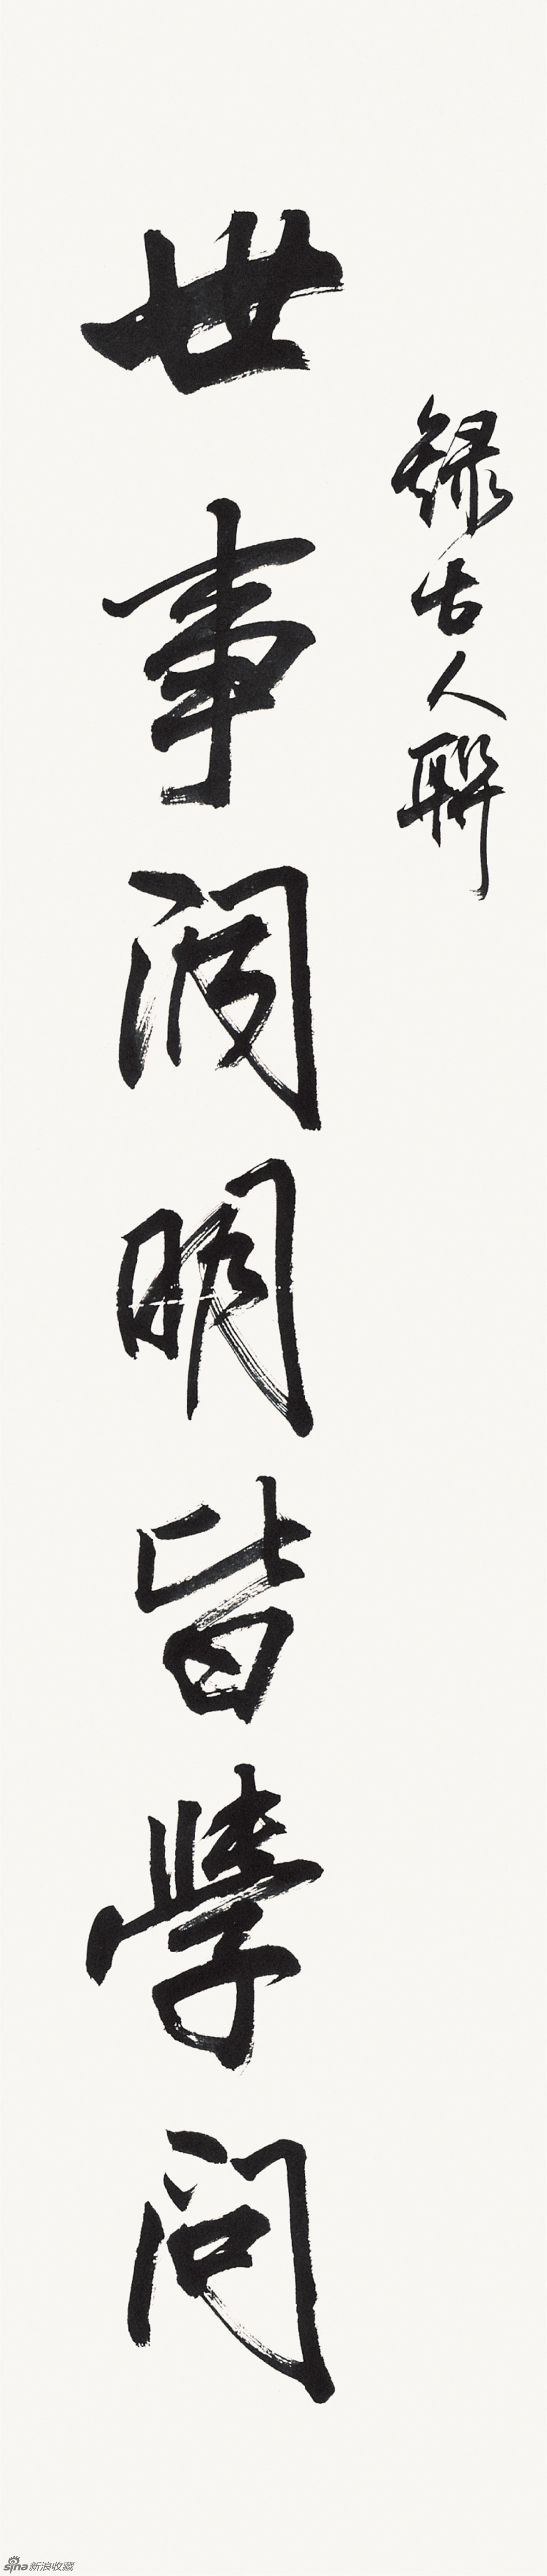 録古人聯
世事洞明皆學問
sina新浪收藏